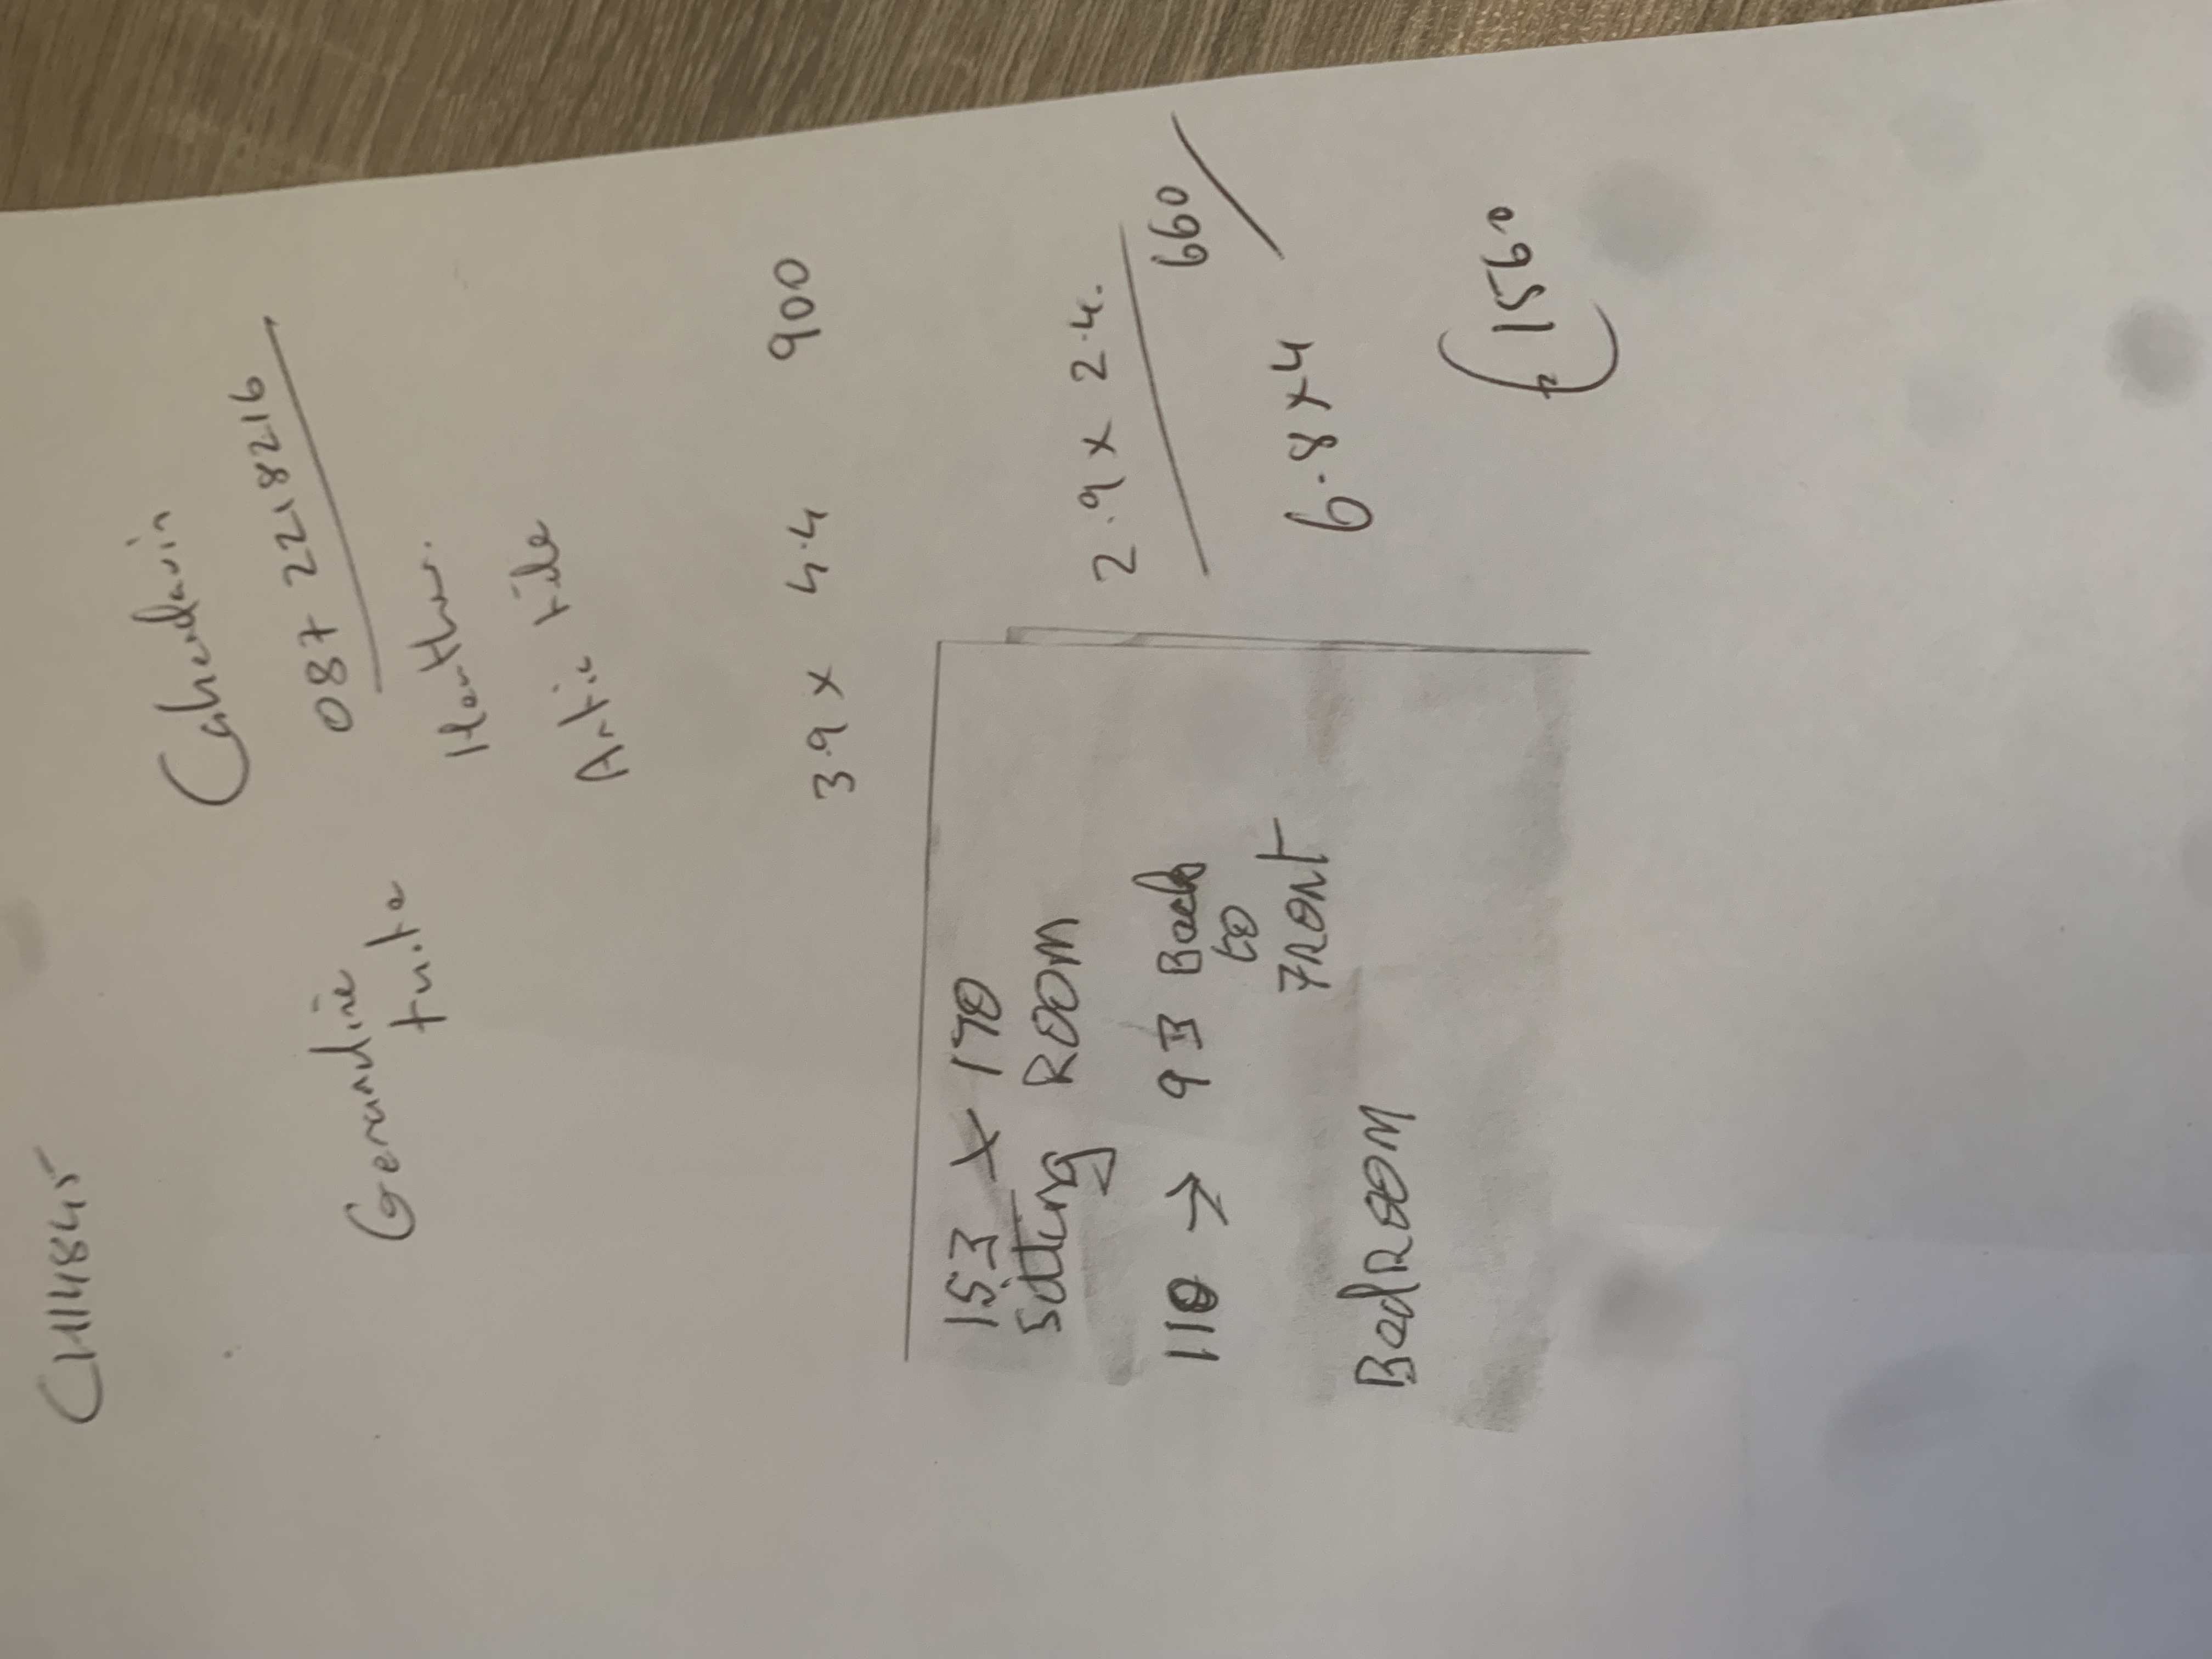 C1114845
Caherdavin
087 2218216
Geraldine
Heather.
Artic tile
3.9 x 4.4 900
153 x 170
Sitting ROOM
2.9 x 2.4.
660
110 → 93 Back
to
FRONT
6.8 x 4
BedROOM
1560